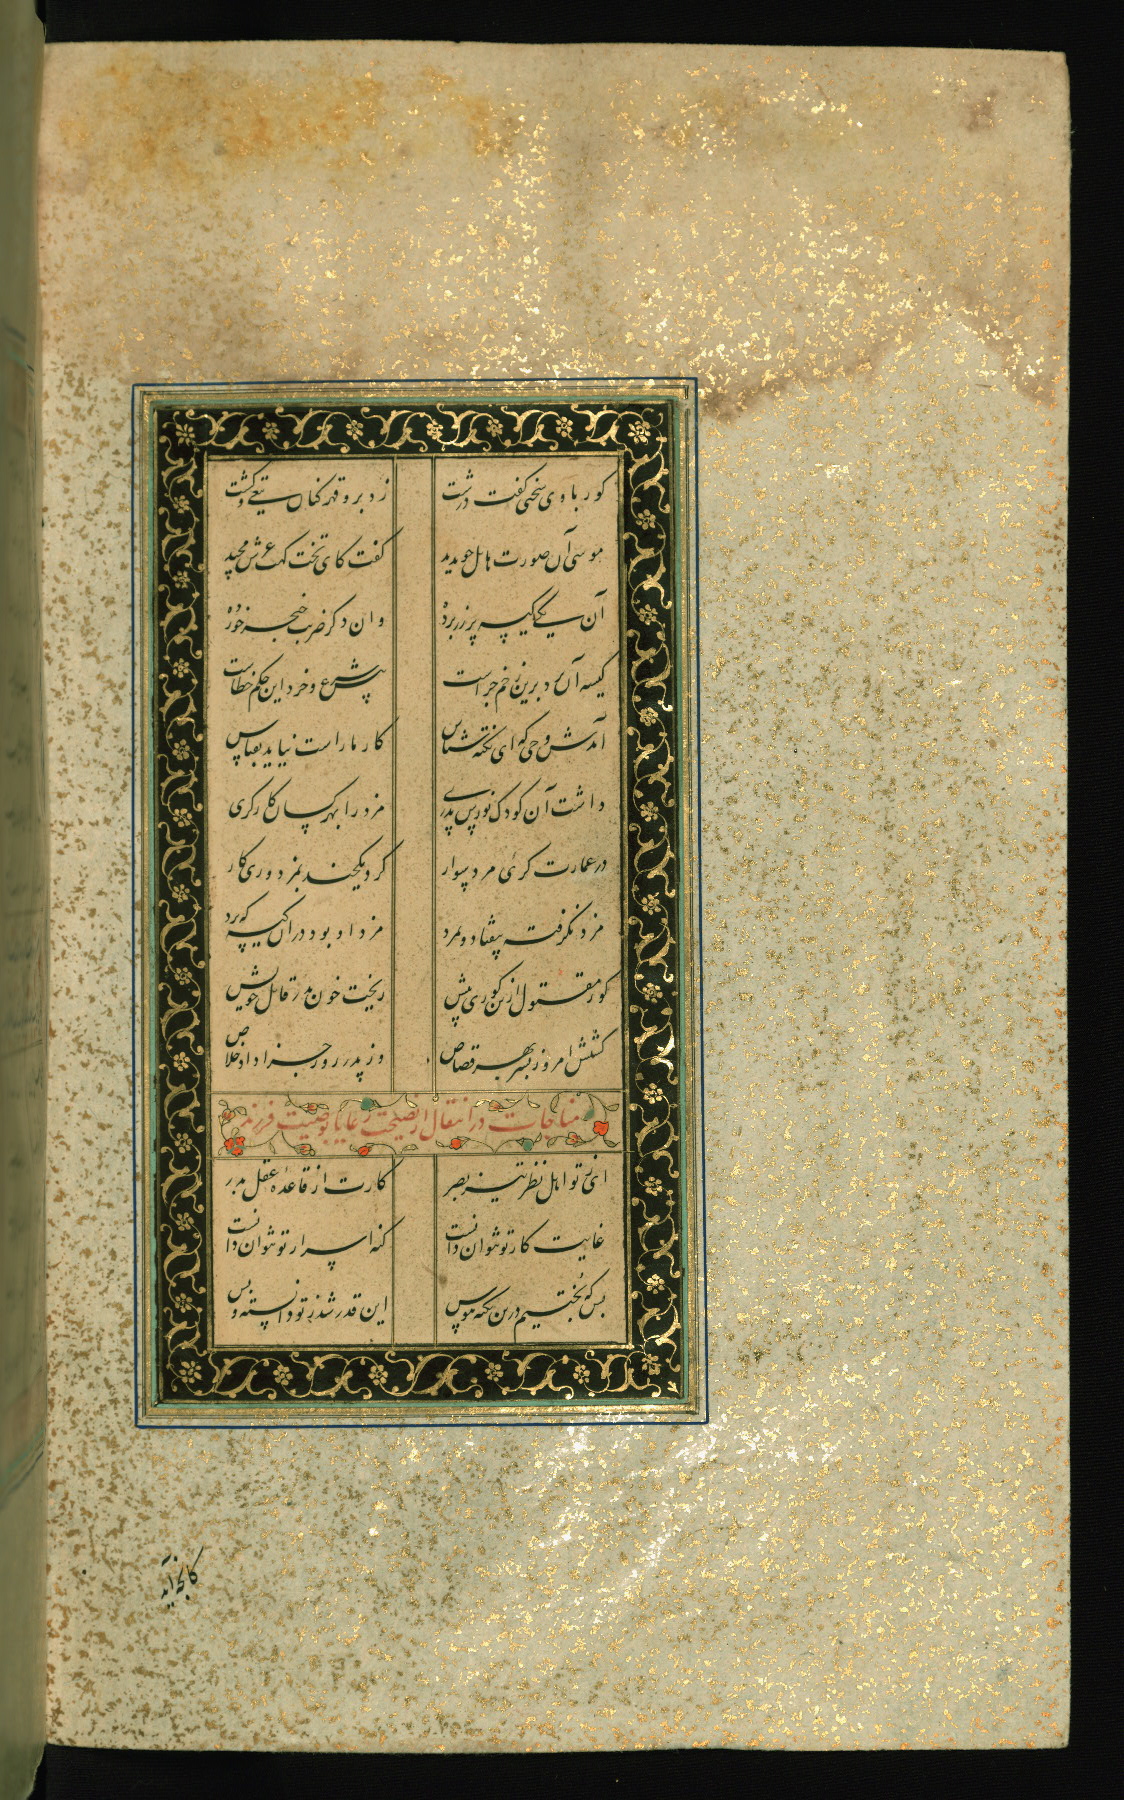 کور با وی سخنی گفت درشت زد برو قهرکنان تیغ و بکشت
موسی آن صورت هایل چو بدید گفت کای تخت گهت عرش مجید
آن یکی کیسه پر زر برده وان دگر ضربت خنجر خورده
کیسه آن برد برین زخم چراست پیش شرع و خرد این حکم خطاست
آمدش وحی که ای نکته شناس کار ما راست نیاید بقیاس
داشت آن کودک نورس پدری مزد را بهر کسان کارگری
در عمارت گری مرد سوار کرد یکچند بمزدوری کار
مزد نگرفته بیفتاد و بمرد مزد او بود در آن کیسه که برد
کور مقتول ازین کوری پیش ریخت خون پدر قاتل خویش
کشتش امروز پسر بهر قصاص وز پدر روز جزا داد خلاص
مناجات در انتقال از نصیحت رعایا بوصیت فرزند
ای ز تو اهل نظر تیز بصر کارت از قاعده عقل بدر
غایت کار تو نتوان دانست کنه اسرار تو نتوان دانست
بس که جستیم درین نکته هوس این قدر شد ز تو دانسته و بس
کانچه آید